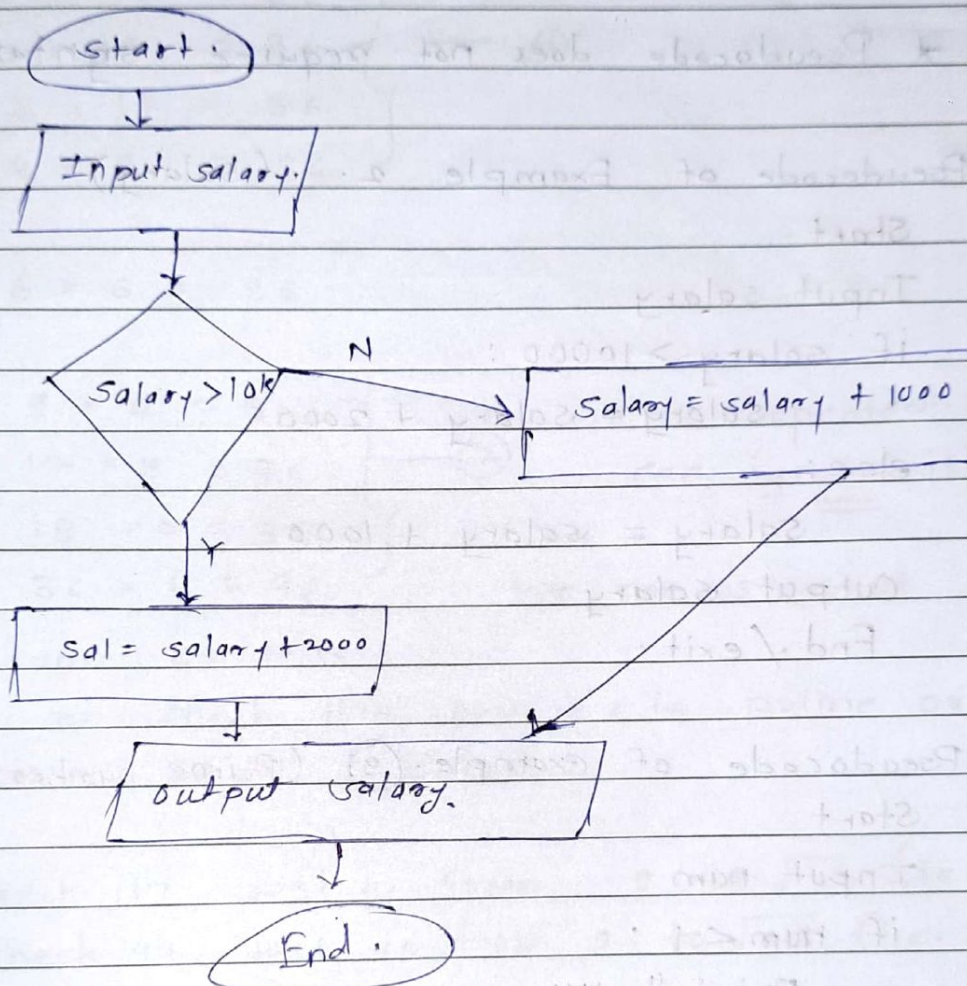 Start.
Input salary.
Salary > 10k
N
Salary = salary + 1000
Y
Sal = salary + 2000
output salary.
End.